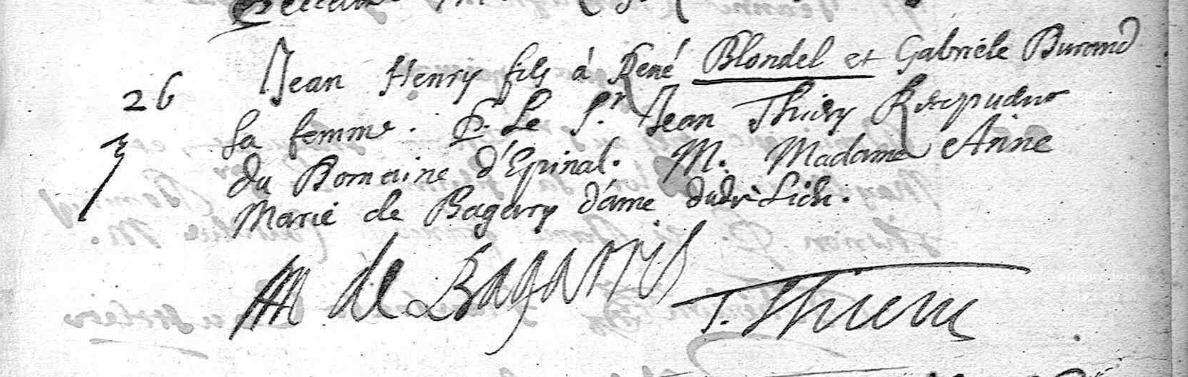 26 Jean Henry fils à René Blondel et Gabriele Durand
sa femme. P. Le Sr Jean Thiery
du Domaine d'Epinal. M. Madame Anne
Marie de Bagarry dame dudt Lieu.
AM de Bagarris
T. Thieri